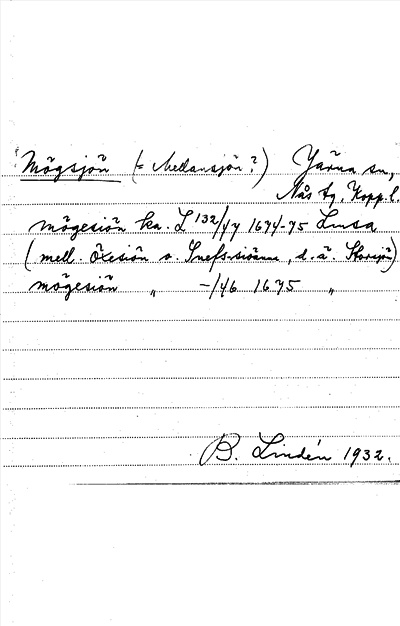 Mögsjön (= Mellansjön?) Järna sn,
Nås tg, Kopp.l.
mögesiön ka. L 132/47 1674-75 Lmsa
(mell. Öxesiön o. Snefs-siöänn, d.ä. Storsjön)
mögesiön „ -/46 1675 „
B. Lindén 1932.